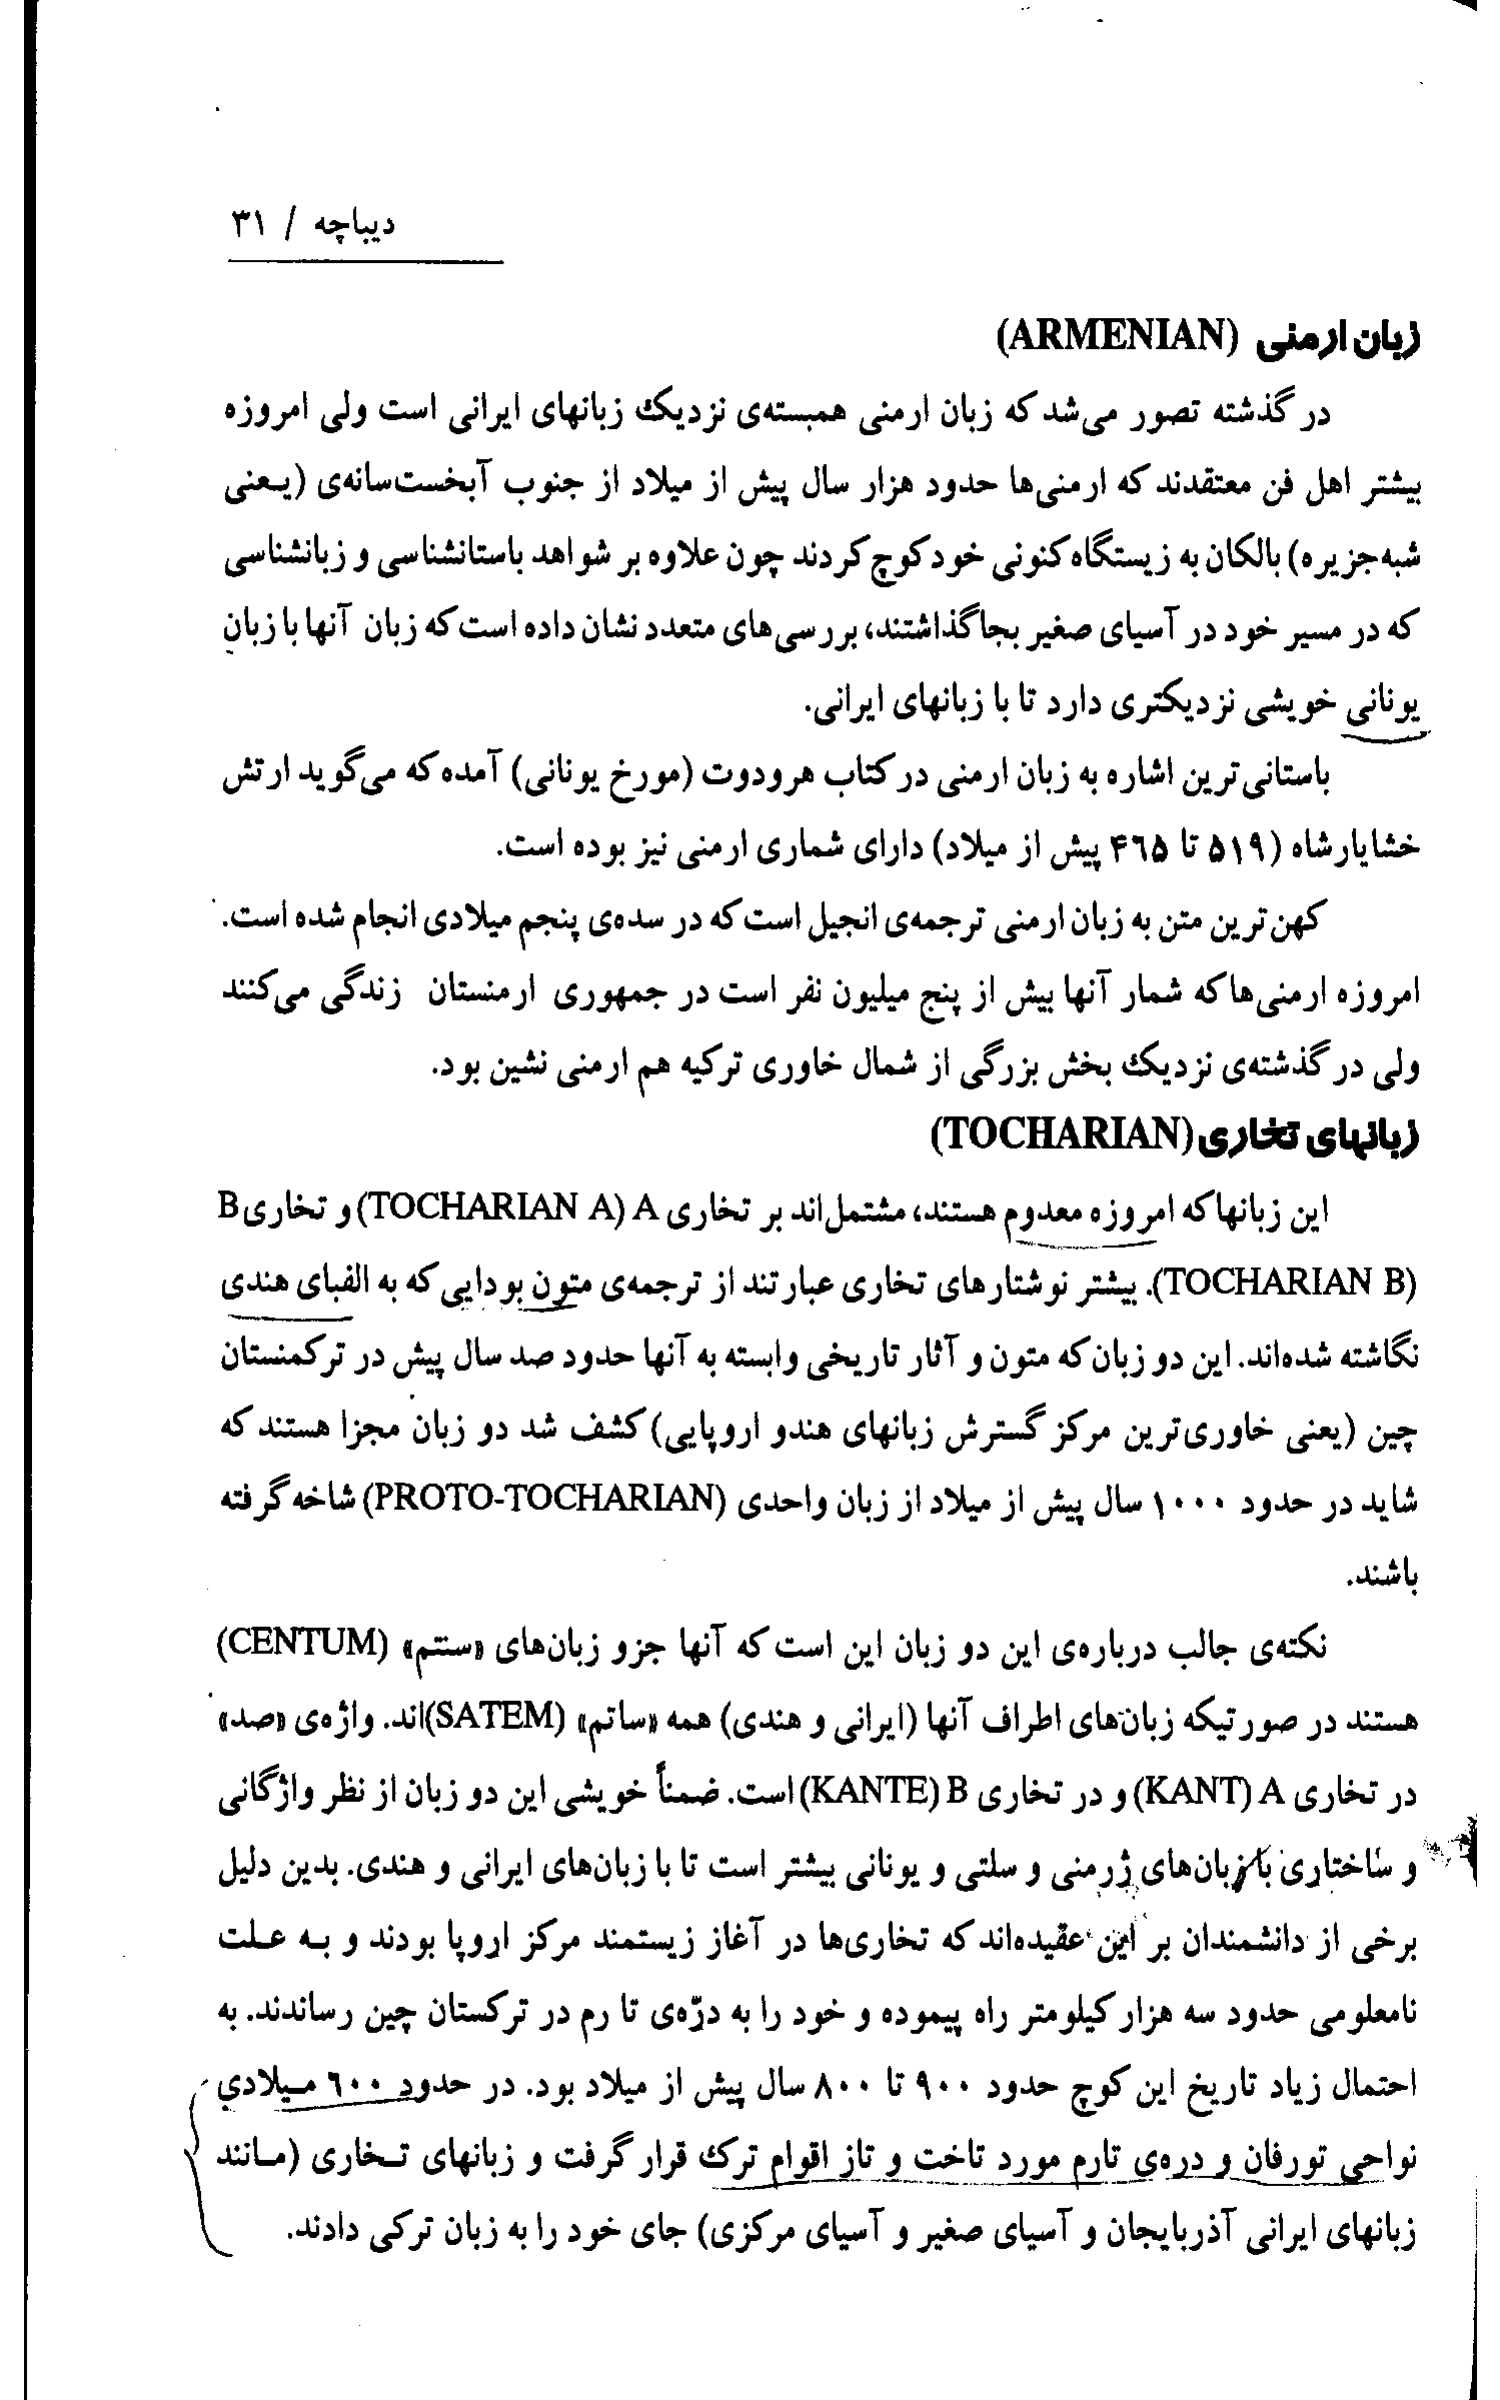 دیباچه / ۳۱
زبان ارمنی (ARMENIAN)
در گذشته تصور می‌شد که زبان ارمنی همبسته‌ی نزدیک زبانهای ایرانی است ولی امروزه
بیشتر اهل فن معتقدند که ارمنی‌ها حدود هزار سال پیش از میلاد از جنوب آبخست‌سانه‌ی (یعنی
شبه‌جزیره) بالکان به زیستگاه کنونی خود کوچ کردند چون علاوه بر شواهد باستانشناسی و زبانشناسی
که در مسیر خود در آسیای صغیر بجا گذاشتند، بررسی‌های متعدد نشان داده است که زبان آنها با زبان
یونانی خویشی نزدیکتری دارد تا با زبانهای ایرانی.
باستانی‌ترین اشاره به زبان ارمنی در کتاب هرودوت (مورخ یونانی) آمده که می‌گوید ارتش
خشایارشاه (۵۱۹ تا ۴۶۵ پیش از میلاد) دارای شماری ارمنی نیز بوده است.
کهن‌ترین متن به زبان ارمنی ترجمه‌ی انجیل است که در سده‌ی پنجم میلادی انجام شده است.
امروزه ارمنی‌ها که شمار آنها بیش از پنج میلیون نفر است در جمهوری ارمنستان زندگی می‌کنند
ولی در گذشته‌ی نزدیک بخش بزرگی از شمال خاوری ترکیه هم ارمنی نشین بود.
زبانهای تخاری (TOCHARIAN)
این زبانها که امروزه معدوم هستند، مشتمل‌اند بر تخاری A (TOCHARIAN A) و تخاری B
(TOCHARIAN B). بیشتر نوشتارهای تخاری عبارتند از ترجمه‌ی متون بودایی که به الفبای هندی
نگاشته شده‌اند. این دو زبان که متون و آثار تاریخی وابسته به آنها حدود صد سال پیش در ترکمنستان
چین (یعنی خاوری‌ترین مرکز گسترش زبانهای هندو اروپایی) کشف شد دو زبان مجزا هستند که
شاید در حدود ۱۰۰۰ سال پیش از میلاد از زبان واحدی (PROTO-TOCHARIAN) شاخه گرفته
باشند.
نکته‌ی جالب درباره‌ی این دو زبان این است که آنها جزو زبان‌های «سنتم» (CENTUM)
هستند در صورتیکه زبان‌های اطراف آنها (ایرانی و هندی) همه «ساتم» (SATEM)اند. واژه‌ی «صد»
در تخاری A (KANT) و در تخاری B (KANTE) است. ضمناً خویشی این دو زبان از نظر واژگانی
و ساختاری با زبان‌های ژرمنی و سلتی و یونانی بیشتر است تا با زبان‌های ایرانی و هندی. بدین دلیل
برخی از دانشمندان بر این عقیده‌اند که تخاری‌ها در آغاز زیستمند مرکز اروپا بودند و به علت
نامعلومی حدود سه هزار کیلومتر راه پیموده و خود را به درّه‌ی تا رم در ترکستان چین رساندند. به
احتمال زیاد تاریخ این کوچ حدود ۹۰۰ تا ۸۰۰ سال پیش از میلاد بود. در حدود ۶۰۰ میلادی
نواحی تورفان و دره‌ی تارم مورد تاخت و تاز اقوام ترک قرار گرفت و زبانهای تخاری (مانند
زبانهای ایرانی آذربایجان و آسیای صغیر و آسیای مرکزی) جای خود را به زبان ترکی دادند.